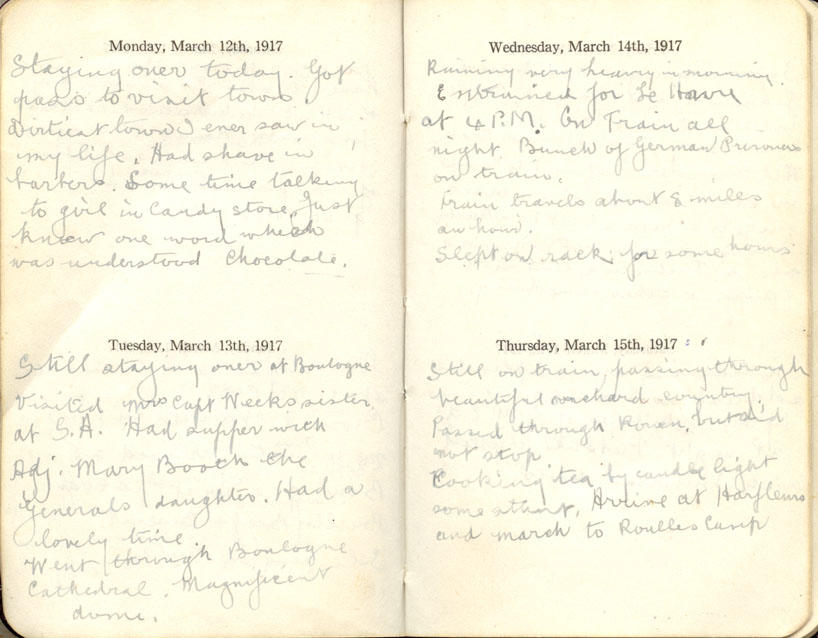 Monday, March 12th, 1917
Staying over today. Got
pass to visit town
Dirtiest town I ever saw in
my life. Had shave in
barbers. Some time talking
to girl in Candy store, Just
knew one word which
was understood Chocolate.
Tuesday, March 13th, 1917
Still staying over at Boulogne
Visited Mrs Capt Weeks sister
at S.A. Had supper with
Adj. Mary Booth the
Generals daughter. Had a
lovely time.
Went through Boulogne
Cathedral. Magnificent
dome.
Wednesday, March 14th, 1917
Raining very heavy in morning.
Entrained for Le Havre
at 4 P.M. On Train all
night. Bunch of German Prisoners
on train.
Train travels about 8 miles
an hour.
Slept on rack for some hours
Thursday, March 15th, 1917
Still on train, passing through
beautiful orchard country.
Passed through Rouen, but did
not stop
Cooking tea by candle light
some stunt. Arrive at Harfleurs
and march to Camp